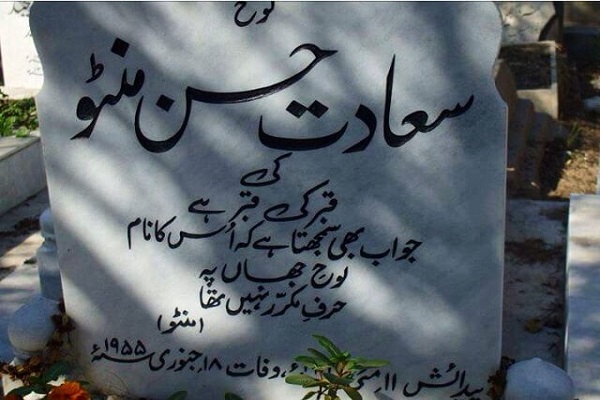 لوح
سعادت حسن منٹو
کی
قبر کی قبر ہے
جواب بھی سمجھتا ہے کہ اُس کا نام
لوحِ جہاں پہ
حرفِ مکرّر نہیں تھا
(منٹو)
پیدائش ۱۱ مئی ، وفات ۱۸، جنوری ۱۹۵۵ء